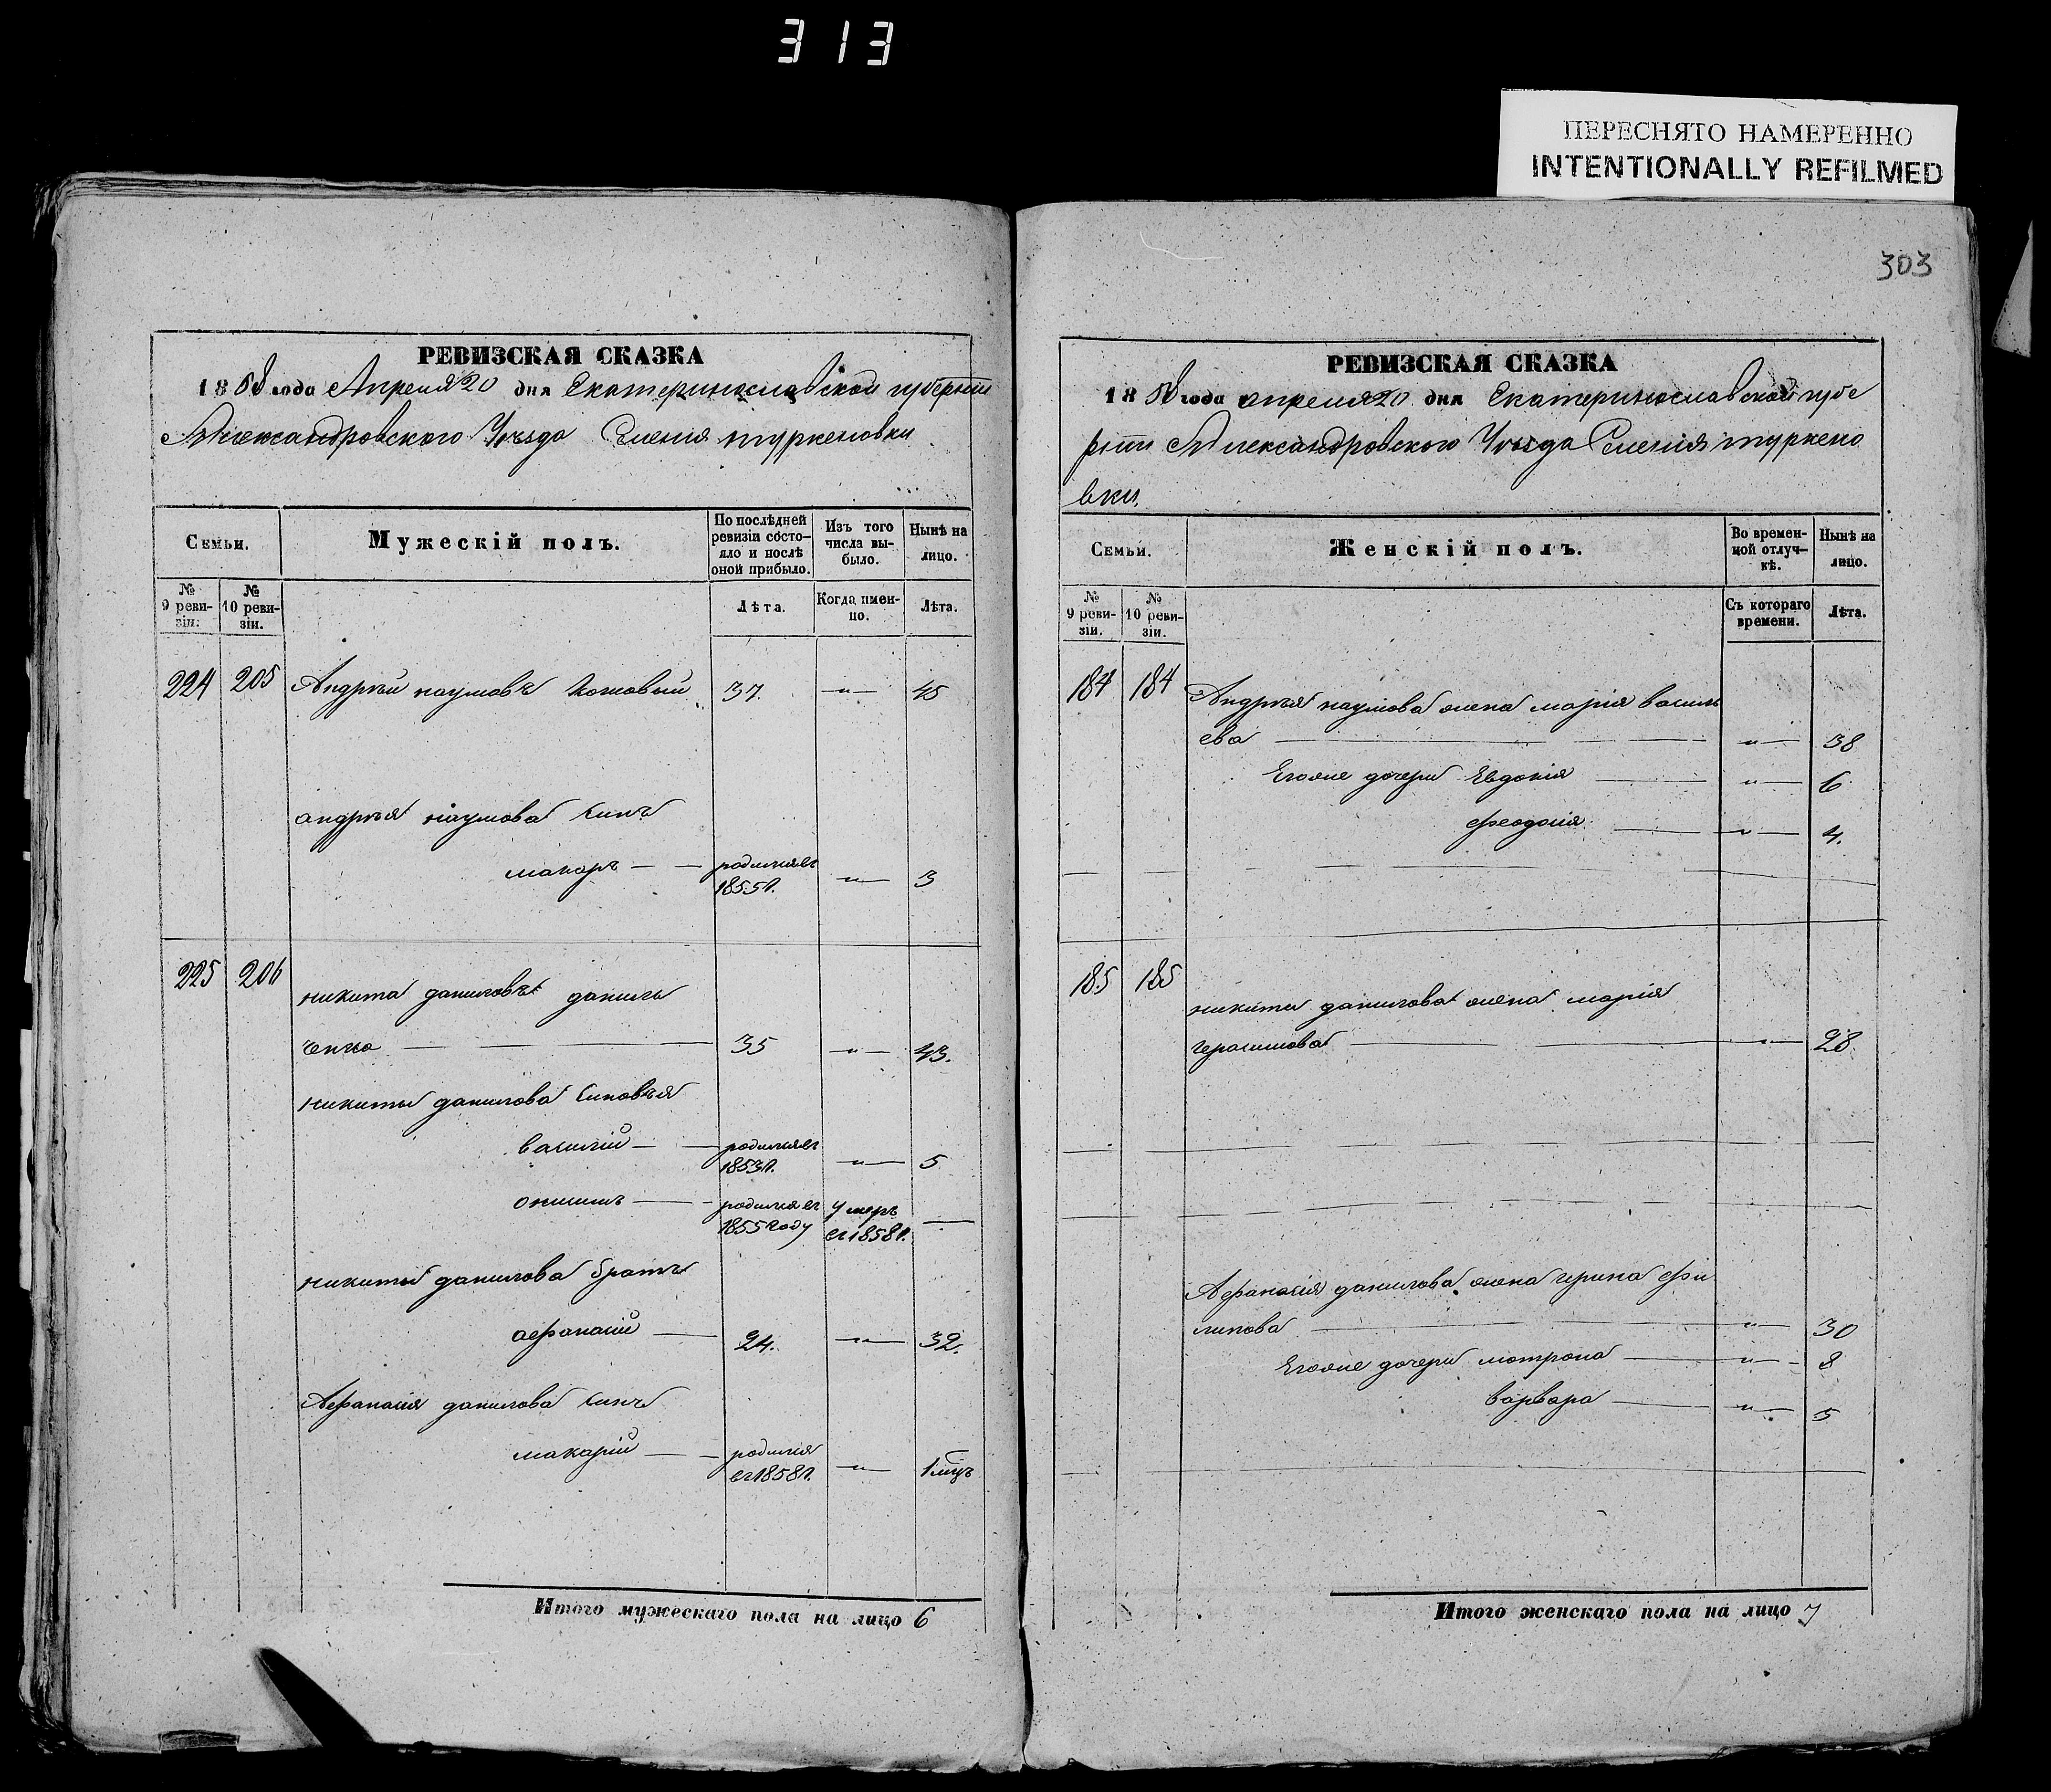 313
ПЕРЕСНЯТО НАМЕРЕННО
INTENTIONALLY REFILMED
РЕВИЗСКАЯ СКАЗКА
1858 года Апреля 20 дня Екатеринославской губернии
Александровского Уѣзда Селения туркеновки
Семьи.
Мужескій полъ.
По послѣдней ревизіи состо-яло и послѣ оной прибыло.
Изъ того числа вы-было.
Нынѣ на лицо.
№ 9 реви-зіи.
№ 10 реви-зіи.
Лѣта.
Когда имен-но.
Лѣта.
224 205 Андрѣй наумовъ Кошовый 37. —"— 45
андрѣя наумова сынъ
макаръ — — родился въ 1855 г. —"— 3
225 206 никита даниловъ даниль
ченко — — 35 —"— 43.
никиты данилова сыновья
василий — — родился въ 1853 г. —"— 5
онисимъ — — родился въ 1855 году умеръ въ 1858 г. —
никиты данилова братъ
афанасий — 24. —"— 32.
Афанасия данилова сынъ
макарий — — родился въ 1858 г. —"— 1 мцъ
Итого мужескаго пола на лицо 6
303
РЕВИЗСКАЯ СКАЗКА
1858 года апреля 20 дня Екатеринославской губе
рнии Александровского Уѣзда Селения туркено
вки.
Семьи.
Женскій полъ.
Во времен-ной отлуч-кѣ.
Нынѣ на лицо.
№ 9 реви-зіи.
№ 10 реви-зіи.
Съ котораго времени.
Лѣта.
184 184 Андрѣя наумова жена мария василь
ева — —"— 38
Егоже дочери Евдокия — —"— 6
феодосия — —"— 4.
185 185 никиты данилова жена мария
герасимова — —"— 28
Афанасия данилова жена ирина фи
липова — —"— 30
Егоже дочери мотрона — —"— 8
варвара — —"— 5
Итого женскаго пола на лицо 7